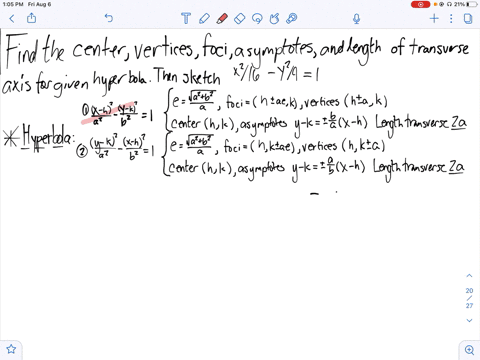 1:05 PM Fri Aug 6
21%
Find the center, vertices, foci, asymptotes, and length of transverse
axis for given hyperbola. Then sketch x²/16 - y²/9 = 1
* Hyperbola:
① (x-h)²/a² - (y-k)²/b² = 1 { e = √(a²+b²)/a, foci = (h±ae, k), vertices (h±a, k)
center (h, k), asymptotes y-k = ± b/a (x-h) Length transverse 2a
② (y-k)²/a² - (x-h)²/b² = 1 { e = √(a²+b²)/a, foci = (h, k±ae), vertices (h, k±a)
center (h, k), asymptotes y-k = ± a/b (x-h) Length transverse 2a
=
20
/
27